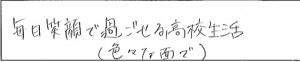 毎日笑顔で過ごせる高校生活
(色々な面で)